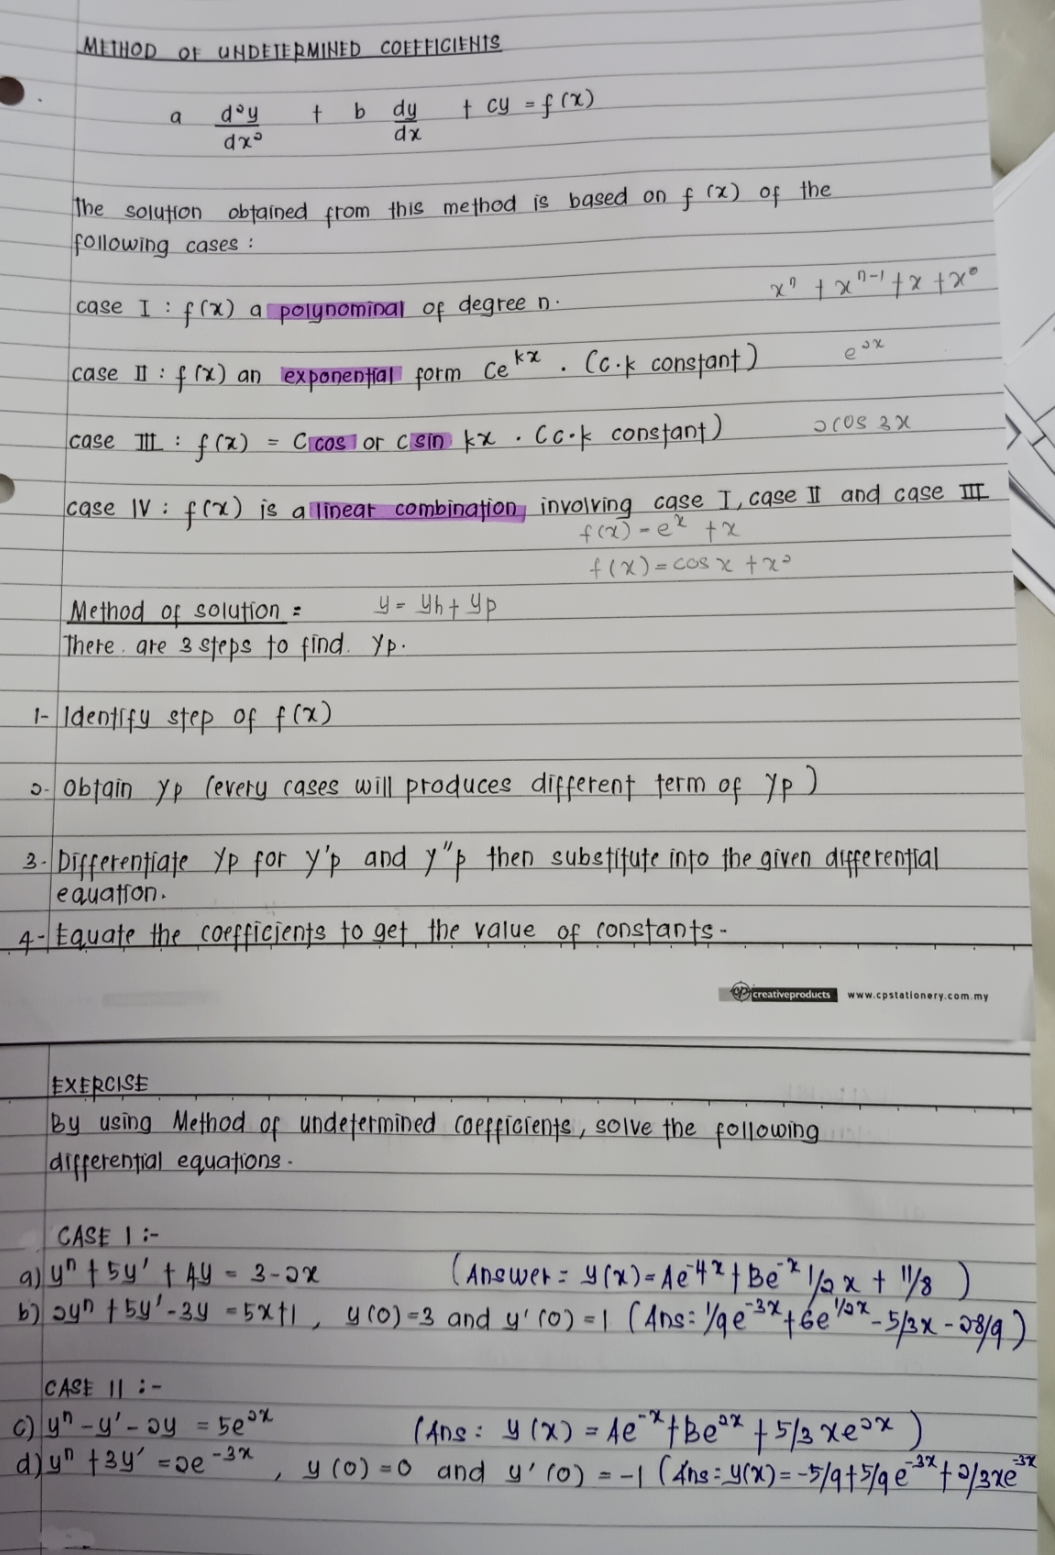 METHOD OF UNDETERMINED COEFFICIENTS
a d²y/dx² + b dy/dx + cy = f(x)
The solution obtained from this method is based on f(x) of the
following cases :
xⁿ + xⁿ⁻¹ + x + x⁰
case I : f(x) a polynominal of degree n.
case II : f(x) an exponential form Ce^kx . (C.k constant) e^2x
case III : f(x) = C cos or C sin kx . (C.k constant) 2 cos 3x
case IV : f(x) is a linear combination involving case I, case II and case III
f(x) = e^x + x
f(x) = cos x + x²
Method of solution = y = yh + yp
There are 3 steps to find yp.
1- Identify step of f(x)
2- Obtain yp (every cases will produces different term of yp)
3- Differentiate yp for y'p and y"p then substitute into the given differential
equation.
4- Equate the coefficients to get the value of constants.
cp creativeproducts www.cpstationery.com.my
EXERCISE
By using Method of undetermined coefficients, solve the following
differential equations.
CASE I :-
a) y" + 5y' + 4y = 3 - 2x (Answer = y(x) = Ae^-4x + Be^-x 1/2 x + 11/8 )
b) 2y" + 5y' - 3y = 5x+1 , y(0)=3 and y'(0)=1 (Ans: 1/9e^-3x + 6e^1/2x - 5/3x - 28/9)
CASE II :-
c) y" - y' - 2y = 5e^2x (Ans: y(x) = Ae^-x + Be^2x + 5/3 xe^2x )
d) y" + 3y' = 2e^-3x , y(0)=0 and y'(0) = -1 (Ans: y(x) = -5/9+5/9e^-3x + 2/3xe^-3x